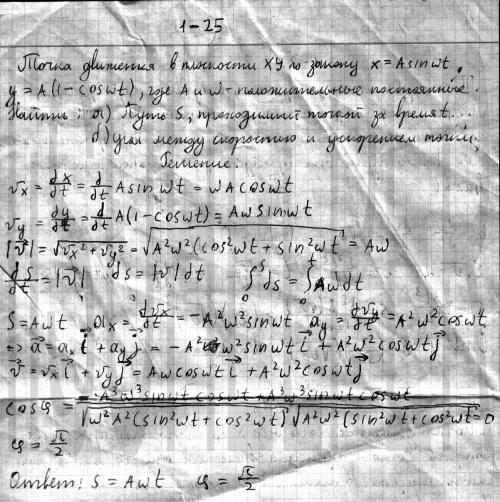 1-25
Точка движения в плоскости XY по закону x = A sin wt,
y = A(1 - cos wt), где A и w - положительные постоянные.
Найти: а) Путь S, проходимый точкой за время t.
б) угол между скоростью и ускорением точки.
Решение:
vx = dx/dt = d/dt A sin wt = wA cos wt
vy = dy/dt = d/dt A(1 - cos wt) = Aw sin wt
|v⃗| = √(vx² + vy²) = √(A²w²(cos²wt + sin²wt)) = Aw
ds/dt = |v⃗| ds = |v|dt ∫₀ˢ ds = ∫₀ᵗ Aw dt
S = Awt ax = dvx/dt = -A²w² sin wt ay = dvy/dt = A²w² cos wt
=> a⃗ = ax i⃗ + ay j⃗ = -A²w² sin wt i⃗ + A²w² cos wt j⃗
v⃗ = vx i⃗ + vy j⃗ = Aw cos wt i⃗ + A²w² cos wt j⃗
cos φ = (-A³w³ sin wt cos wt + A³w³ sin wt cos wt) / (√(w²A²(sin²wt + cos²wt)) √(A²w²(sin²wt + cos²wt))) = 0
φ = π/2
Ответ: S = Awt φ = π/2